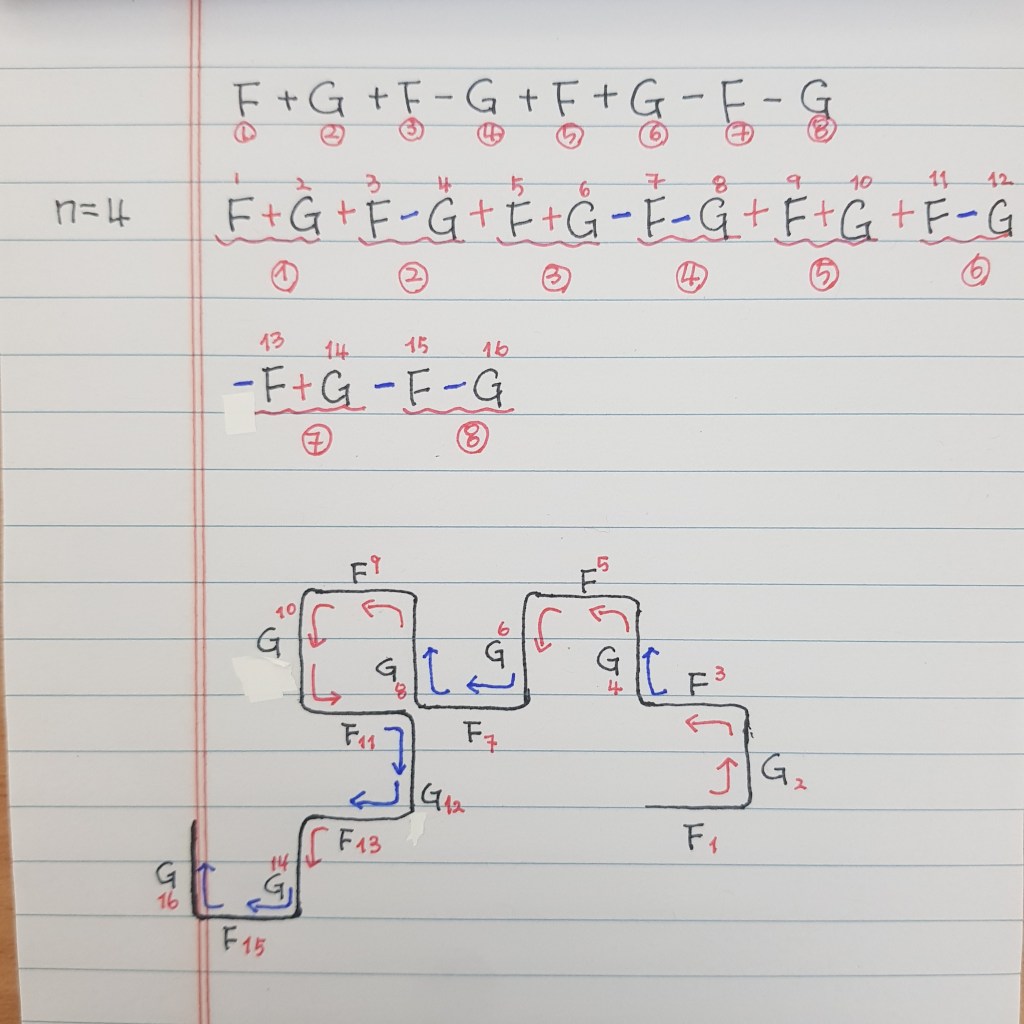 F + G + F - G + F + G - F - G
① ② ③ ④ ⑤ ⑥ ⑦ ⑧
1 2 3 4 5 6 7 8 9 10 11 12
n=4 F + G + F - G + F + G - F - G + F + G + F - G
① ② ③ ④ ⑤ ⑥
13 14 15 16
- F + G - F - G
⑦ ⑧
F 9 F 5
10 G G 8 6 G G 4 F 3
F 11 F 7 G 2
G 12
F 13 F 1
G 16 14 G
F 15